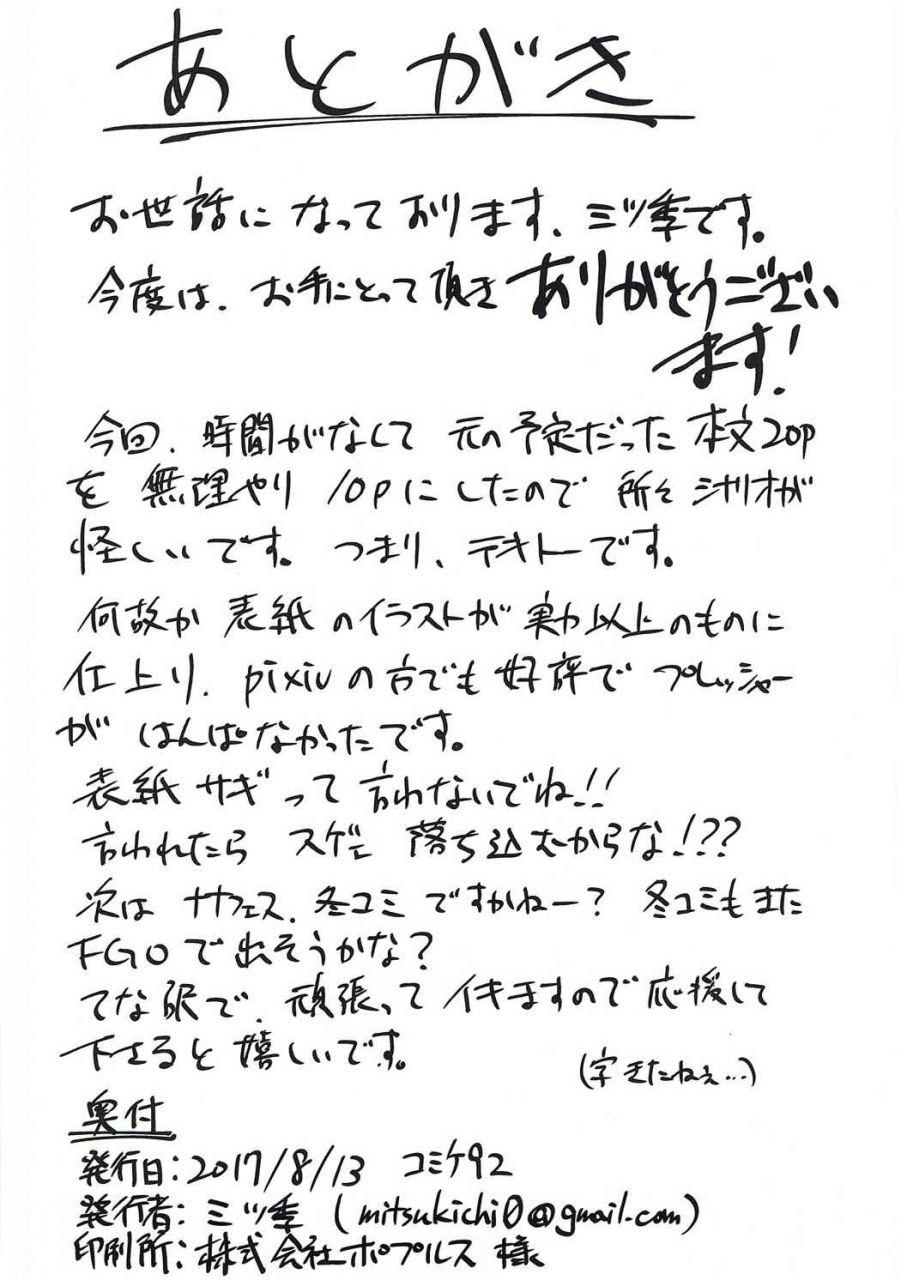 あとがき
お世話になっております、ミツ季です。
今度は、お手にとって頂きありがとうござい
ます!
今回、時間がなくて元の予定だった本文20p
を無理やり10pにしたので所々シナリオが
怪しいです。つまり、テキトーです。
何故か表紙のイラストが実力以上のものに
仕上り、pixivの方でも好評でプレッシャー
がはんぱなかったです。
表紙サギって言わないでね!!
言われたらスゲェ落ち込むからな!??
次はサナフェス、冬コミですかねー?冬コミもまた
FGOで出そうかな?
てな訳で、頑張ってイキますので応援して
下さると嬉しいです。
(字きたねぇ…)
奥付
発行日:2017/8/13 コミケ92
発行者:ミツ季(mitsukichi0@gmail.com)
印刷所:株式会社ポプルス 様